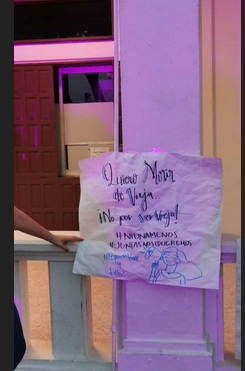 Quiero Morir
de Vieja..
¡No por ser Vieja!
#NIUNAMENOS
#JUNTASNOSQUEREMOS
y